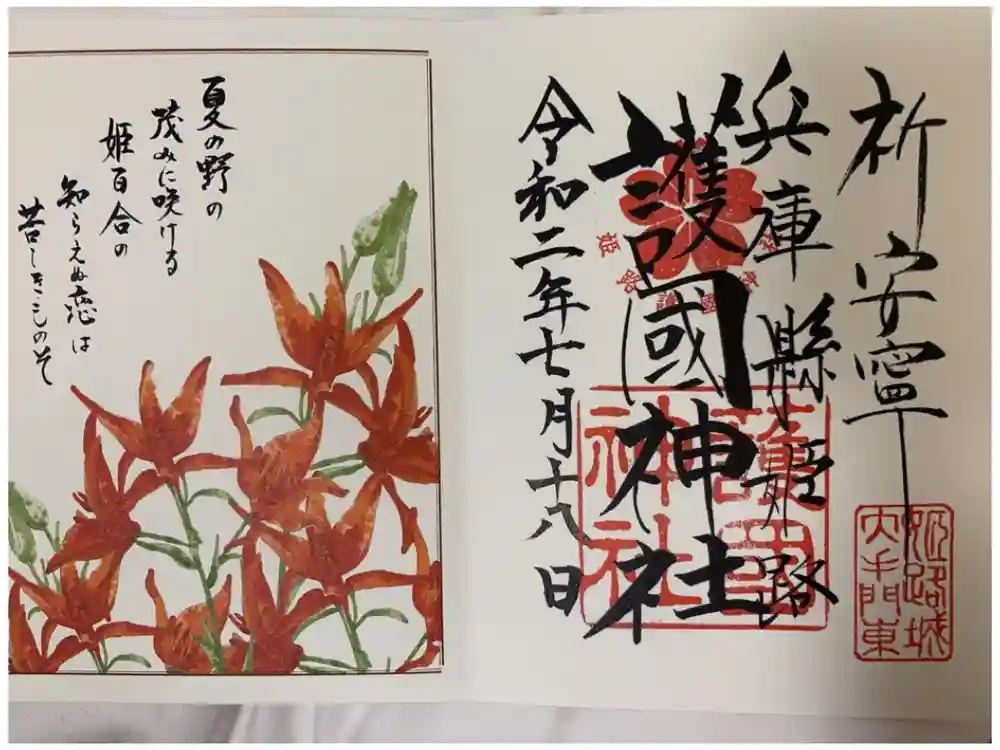 祈安寧
兵庫縣姫路
護國神社
令和二年七月十八日
護国
神社
姫路城
大手門東
夏の野の
茂みに咲ける
姫百合の
知らえぬ恋は
苦しきものそ